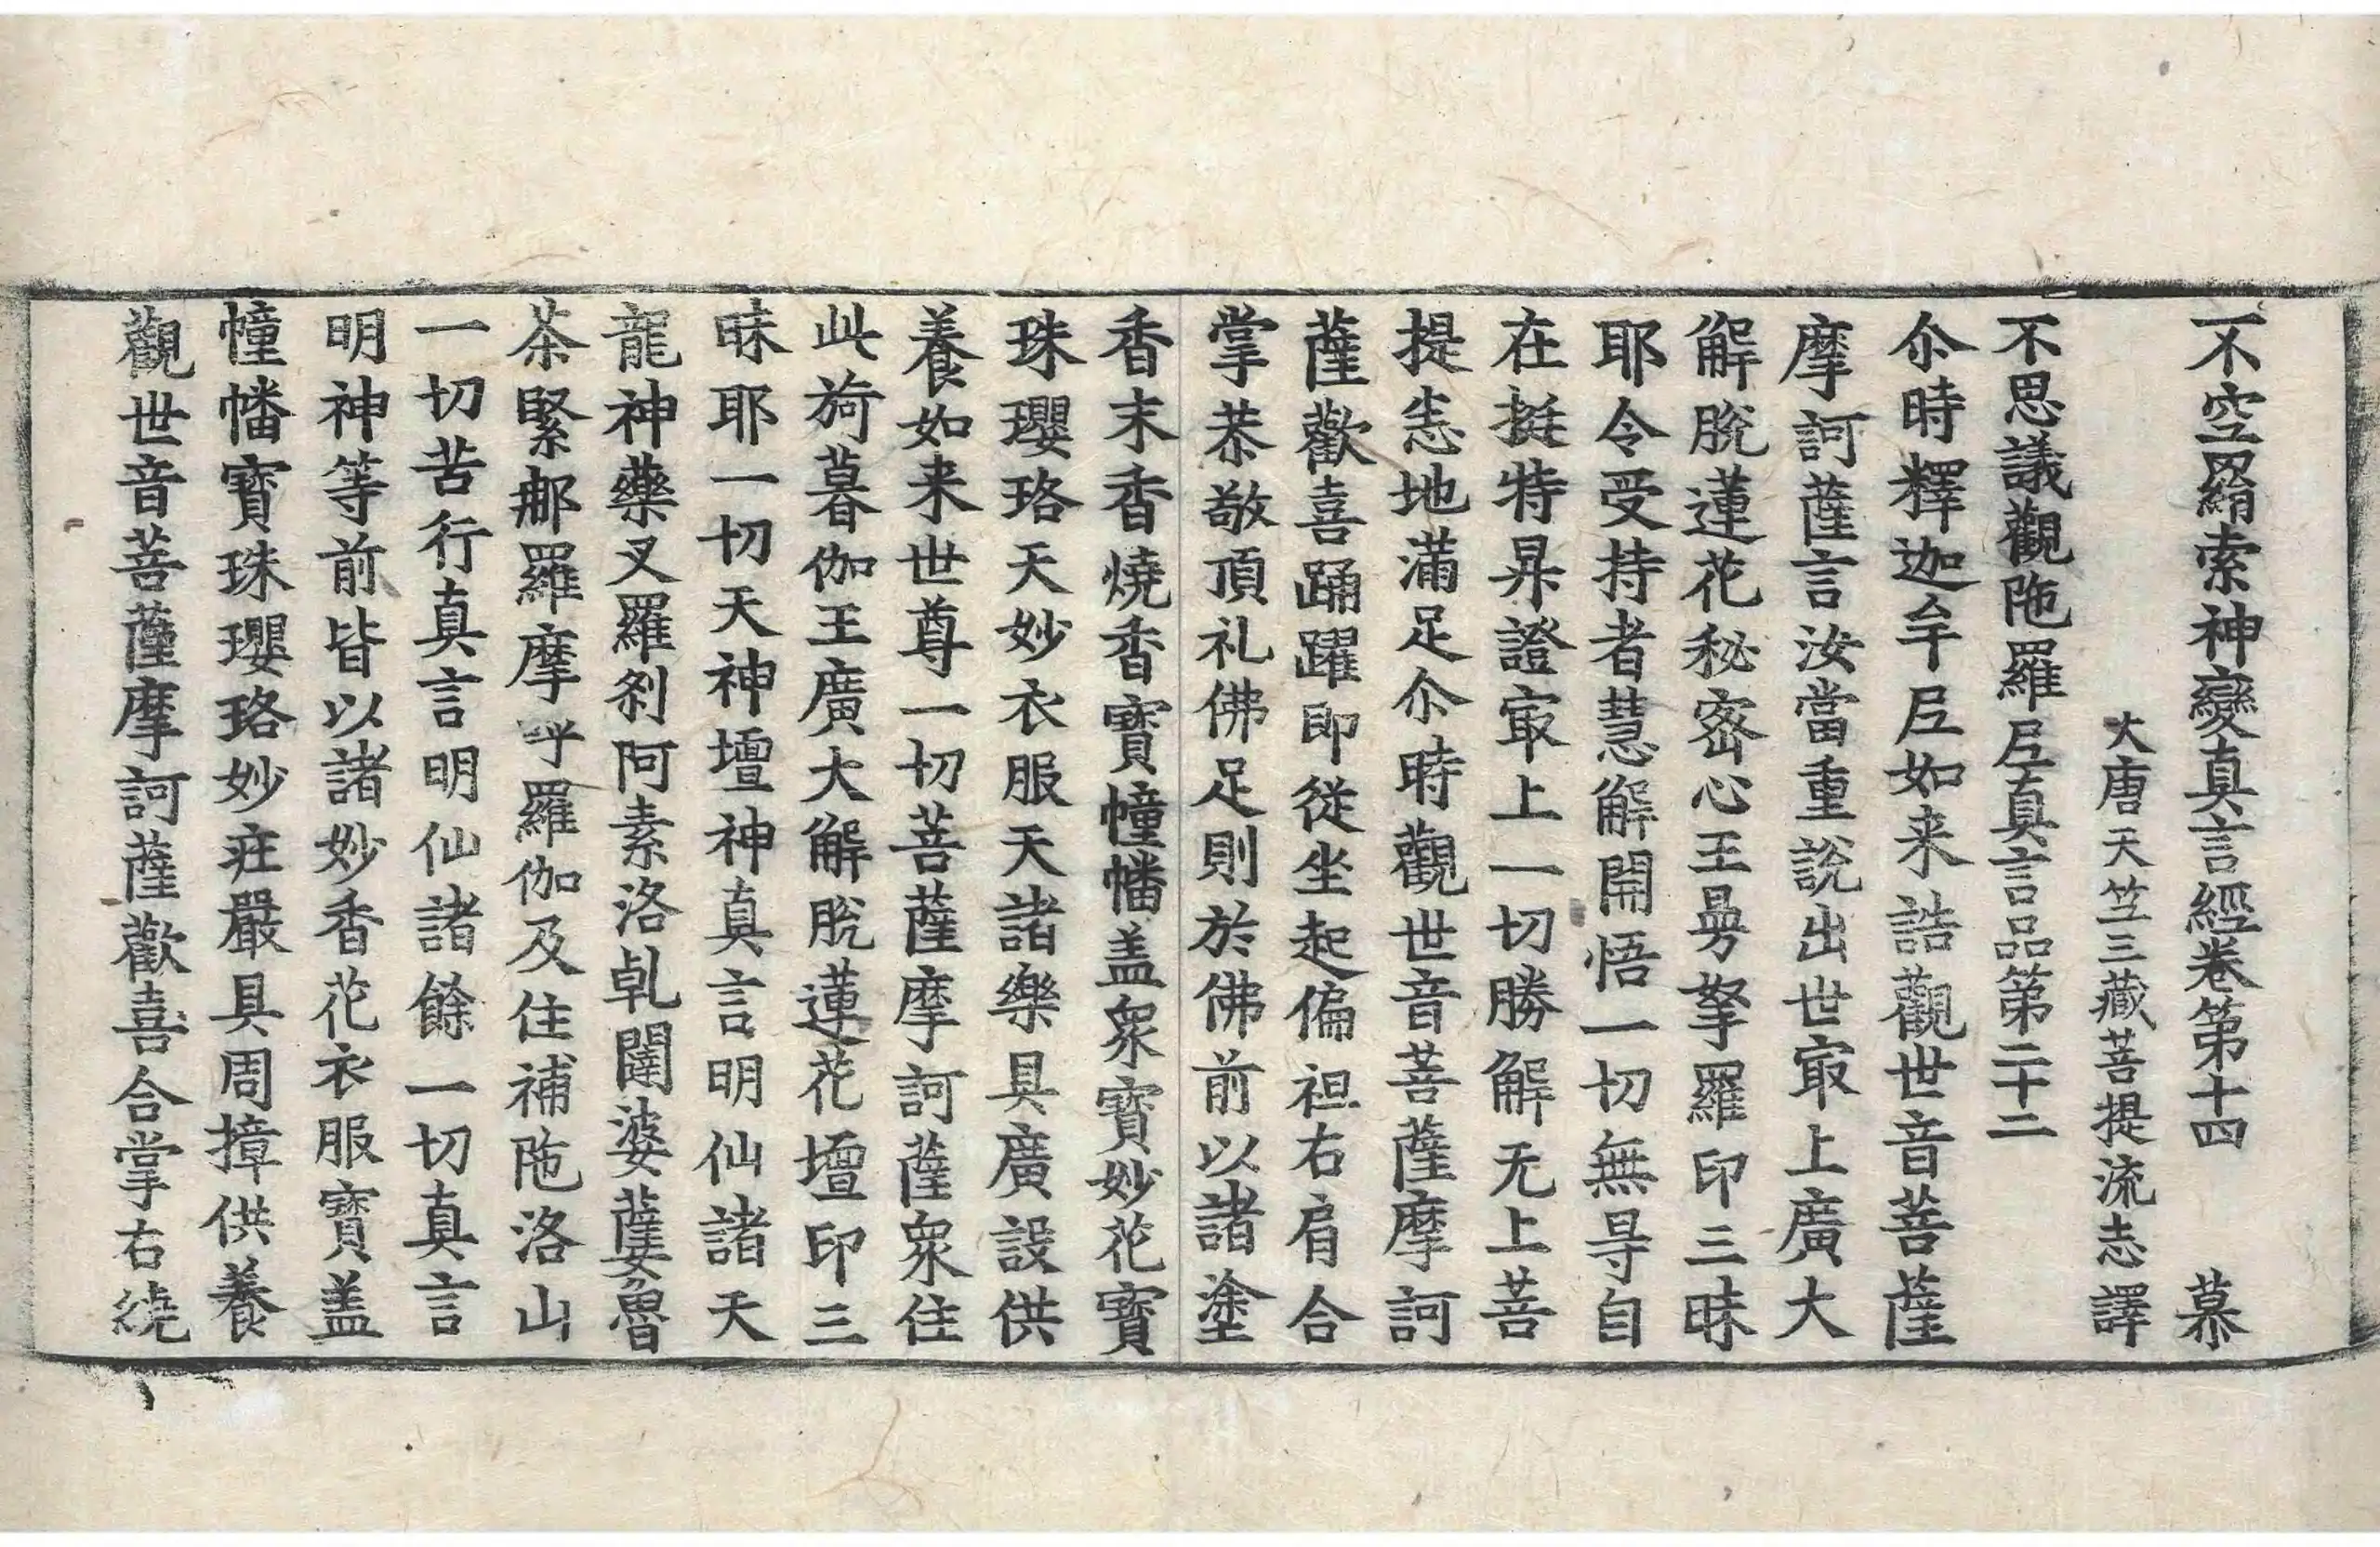 不空羂索神變真言經卷第十四　慕
大唐天竺三藏菩提流志譯
不思議觀陁羅尼真言品第二十二
尒時釋迦牟尼如来誥觀世音菩薩
摩訶薩言汝當重說出世㝡上廣大
解脫蓮花秘密心王曼拏羅印三昧
耶令受持者慧解開悟一切無㝵自
在挺特昇證㝡上一切勝解无上菩
提悉地滿足尒時觀世音菩薩摩訶
薩歡喜踊躍即從坐起偏袒右肩合
掌恭敬頂礼佛足則於佛前以諸塗
香末香燒香寶幢幡盖衆寶妙花寶
珠瓔珞天妙衣服天諸樂具廣設供
養如来世尊一切菩薩摩訶薩衆住
此旖暮伽王廣大解脫蓮花壇印三
昧耶一切天神壇神真言明仙諸天
龍神藥叉羅剎阿素洛乹闥婆蘗魯
茶緊那羅摩呼羅伽及住補陁洛山
一切苦行真言明仙諸餘一切真言
明神等前皆以諸妙香花衣服寶盖
幢幡寶珠瓔珞妙莊嚴具周㨄供養
觀世音菩薩摩訶薩歡喜合掌右繞